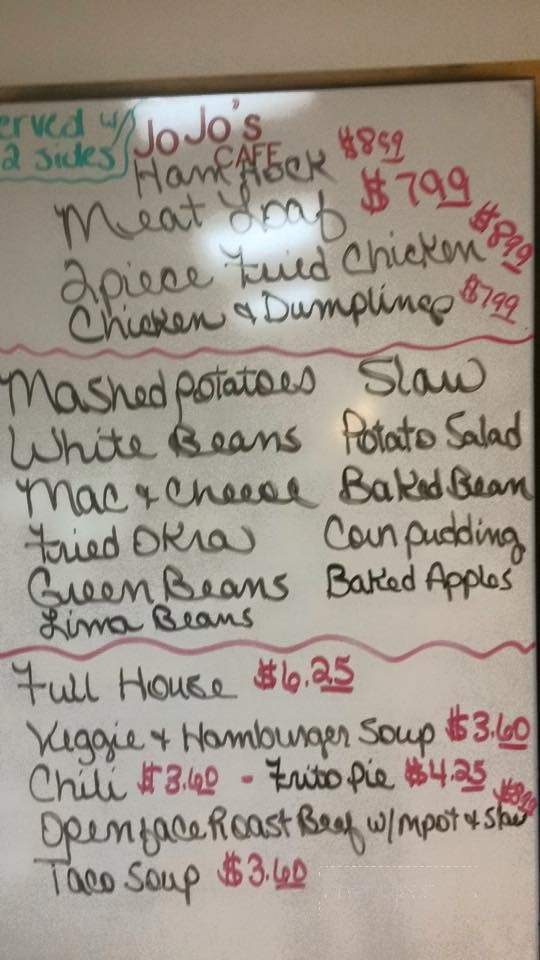 erved w/
2 sides
JoJo's
CAFE
Ham Hock $8.99
Meat Loaf $7.99
2 piece Fried Chicken $8.99
Chicken & Dumplings $7.99
Mashed potatoes Slaw
White Beans Potato Salad
Mac & Cheese Baked Bean
Fried Okra Corn pudding
Green Beans Baked Apples
Lima Beans
Full House $6.25
Veggie & Hamburger Soup $3.60
Chili $3.60 - Frito pie $4.25
Openface Roast Beef w/mpot & Slaw
Taco Soup $3.60